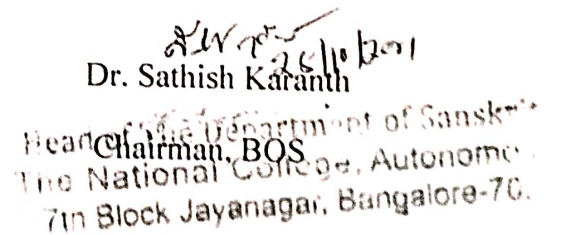 26/10/2021
Dr. Sathish Karanth
Head of the Department of Sansk
Chairman, BOS
The National College, Autonomo
7th Block Jayanagar, Bangalore-70.